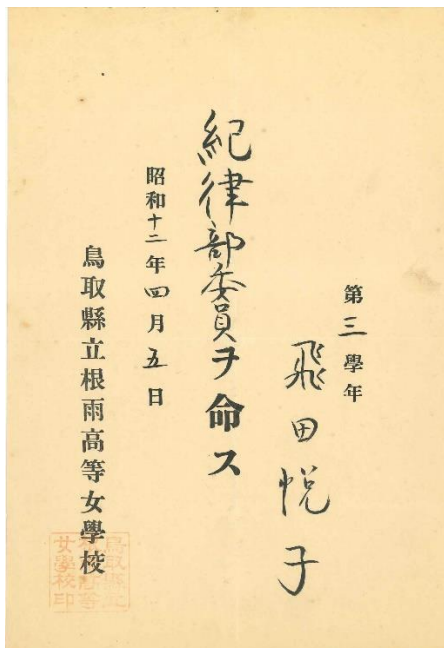 第三學年
飛田悦子
紀律部委員ヲ命ス
昭和十二年四月五日
鳥取縣立根雨高等女學校
鳥取縣立
根雨高等
女學校印